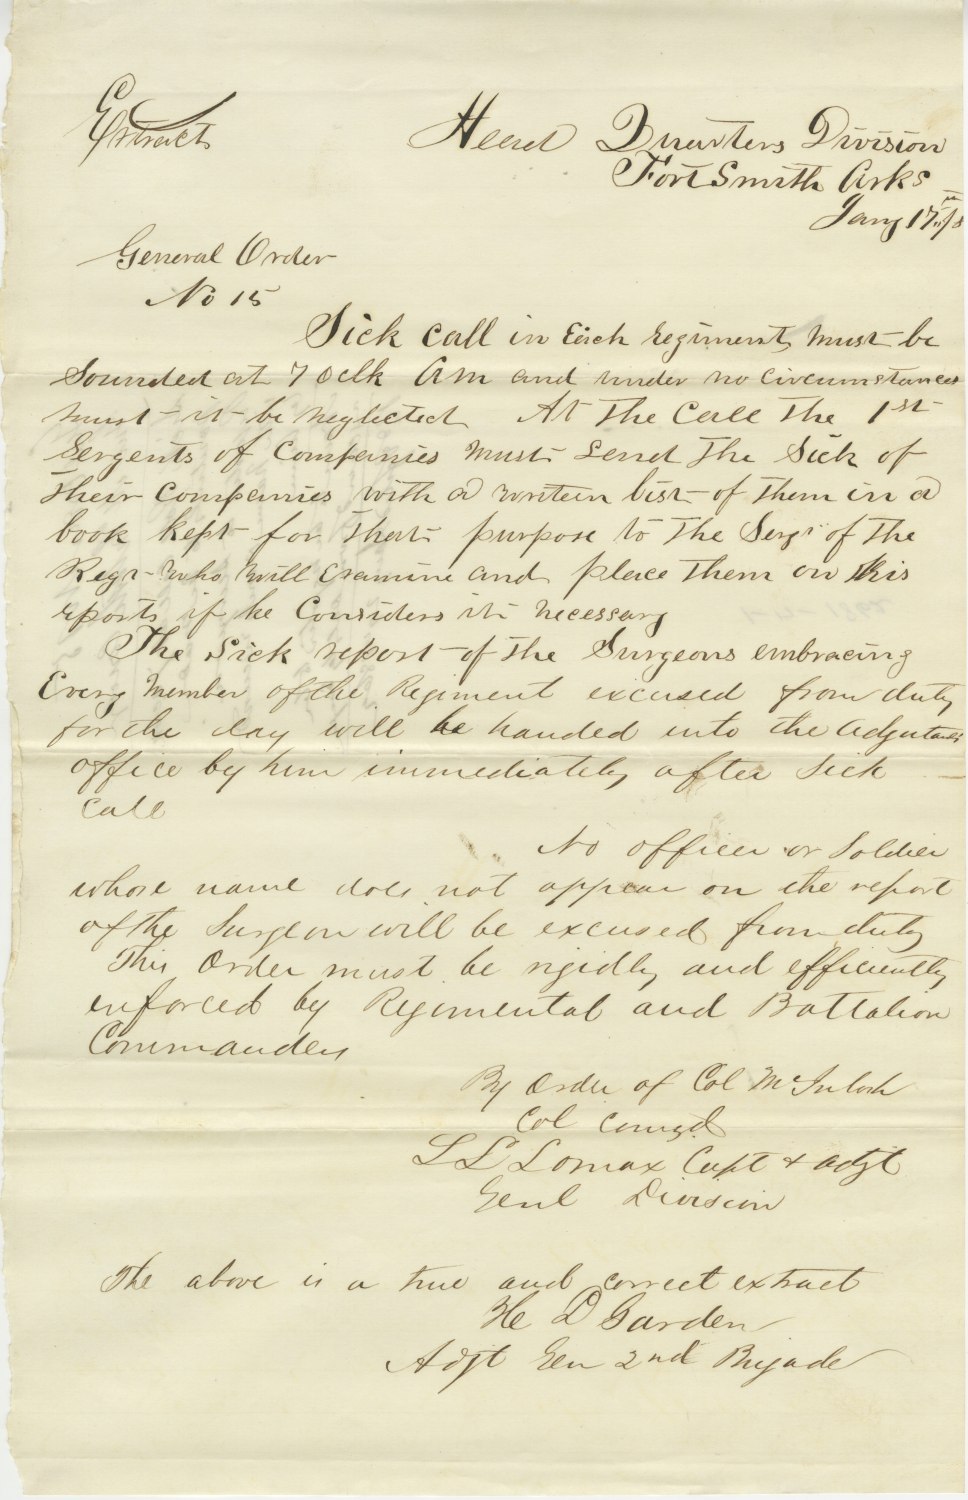 Extract
Head Quarters Division
Fort Smith Arks
Jany 17th
General Order
No 15
Sick Call in Each regiment must be
Sounded at 7 Oclk Am and under no Circumstances
must it be neglected At The Call The 1st
Sergents of Companies must Send The Sick of
Their Companies with a writen list of them in a
book kept for that purpose to The Surgn of The
Regt who will examine and place them on his
reports if he Considers it necessary
The Sick report of the Surgeons embracing
Every Member of the Regiment excused from duty
for the day will be handed into the adjutants
office by him immediately after Sick
Call
No officer or Soldier
whose name does not appear on the report
of the Surgeon will be excused from duty
This Order must be rigidly and efficiently
enforced by Regimental and Battalion
Commanders
By Order of Col McIntosh
Col Comgd
L L Lomax Capt & Adjt
Genl Division
The above is a true and correct extract
D Garden
Adjt Gen 2nd Brigade